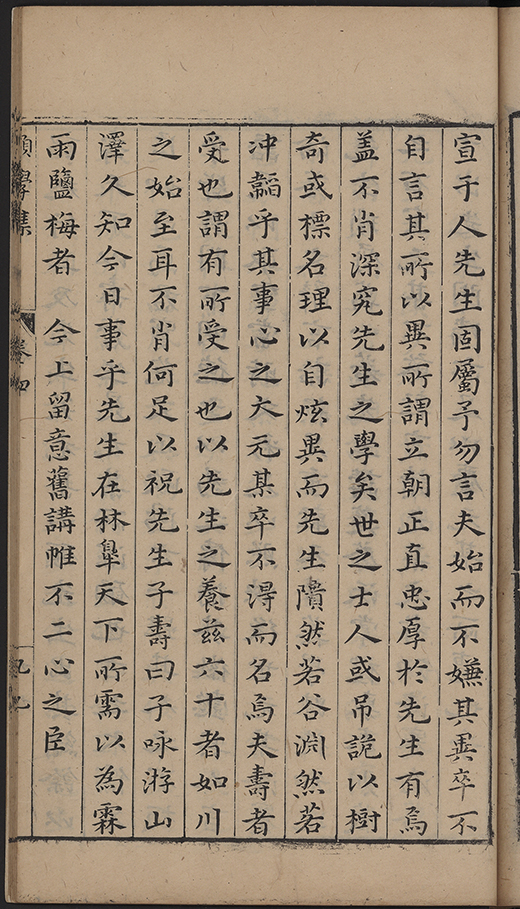 宣于人先生固屬予勿言夫始而不嫌其異卒不
自言其所以異所謂立朝正直忠厚於先生有焉
盖不肖深究先生之學矣世之士人或吊詭以樹
奇或標名理以自炫異而先生隤然若谷淵然若
冲韜乎其事心之大元某卒不得而名焉夫壽者
受也謂有所受之也以先生之養兹六十者如川
之始至耳不肖何足以祝先生子壽曰子咏游山
澤久知今日事乎先生在林臯天下所需以為霖
雨鹽梅者 今上留意舊講帷不二心之臣
學集 卷四